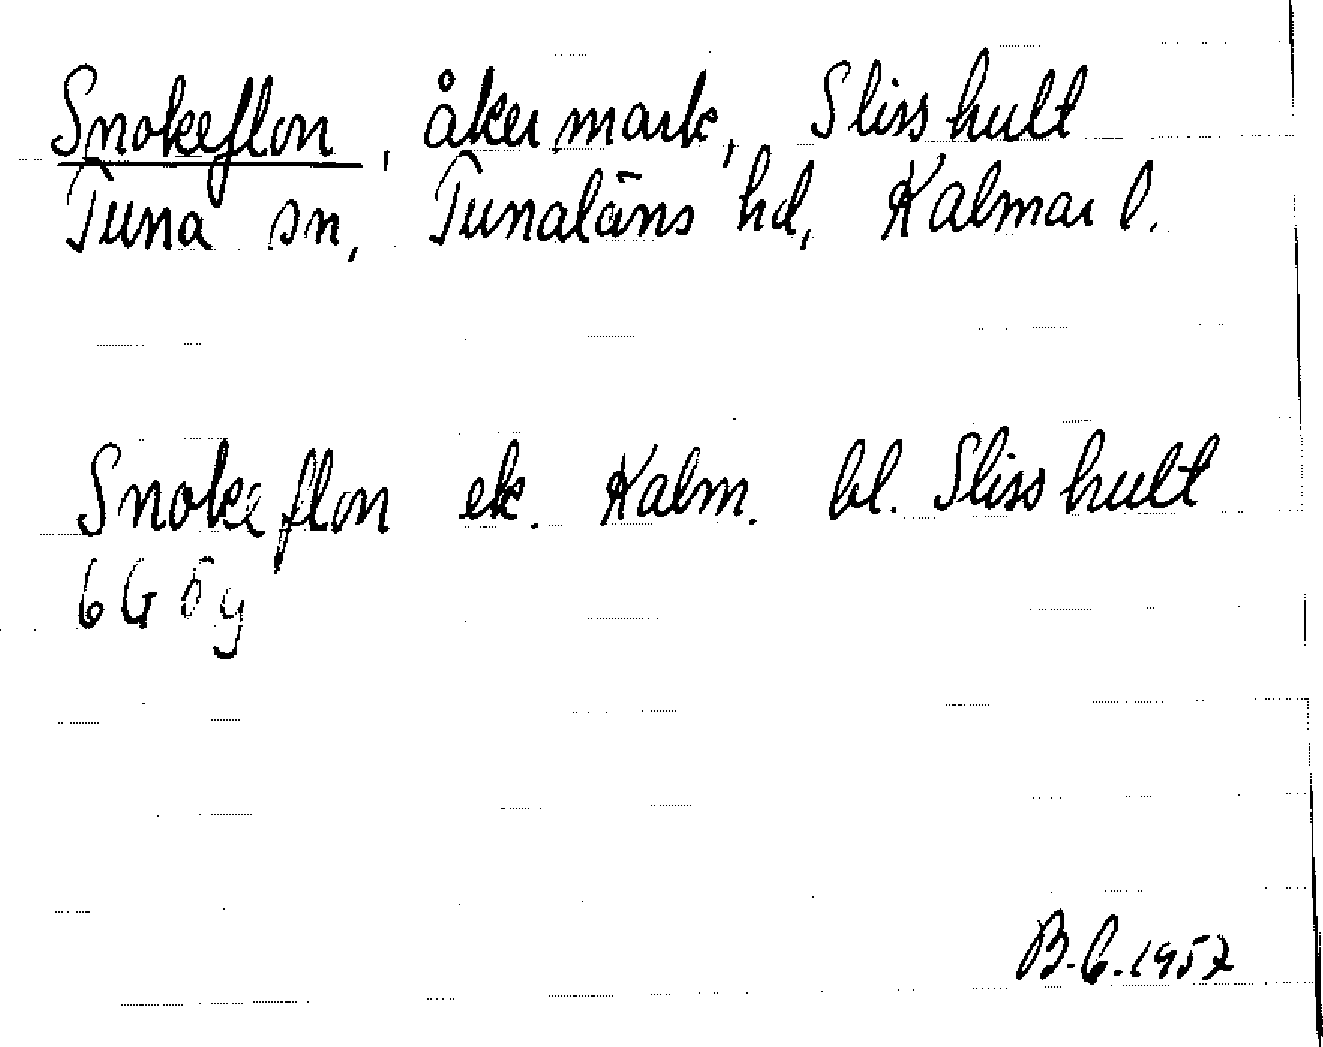 Snokeflon, åkermark, Slisshult
Tuna sn, Tunaläns hd, Kalmar l.
Snokeflon ek. Kalm. bl. Slisshult
6G 5y
B.G.1957